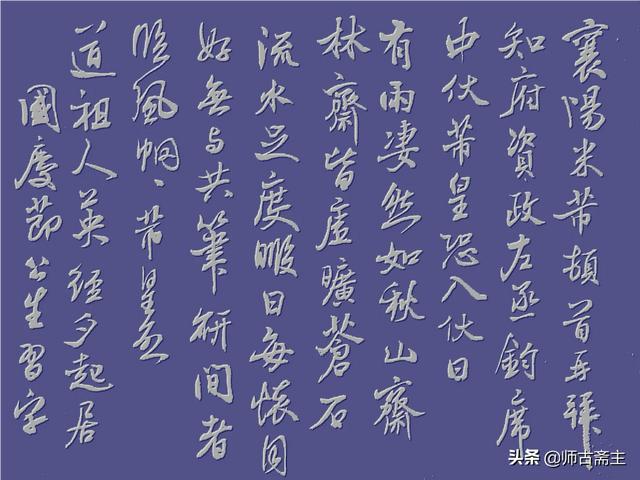 襄陽米芾頓首再拜
知府資政左丞鈞席
中伏芾皇恐入伏日
有雨凄然如秋山齋
林齋皆虛曠蒼石
流水足度暇日每懷同
好無与共筆研間者
臨風惘〻芾皇恐
道祖人英經夕起居
國慶節公生習字
头条 @师古斋主